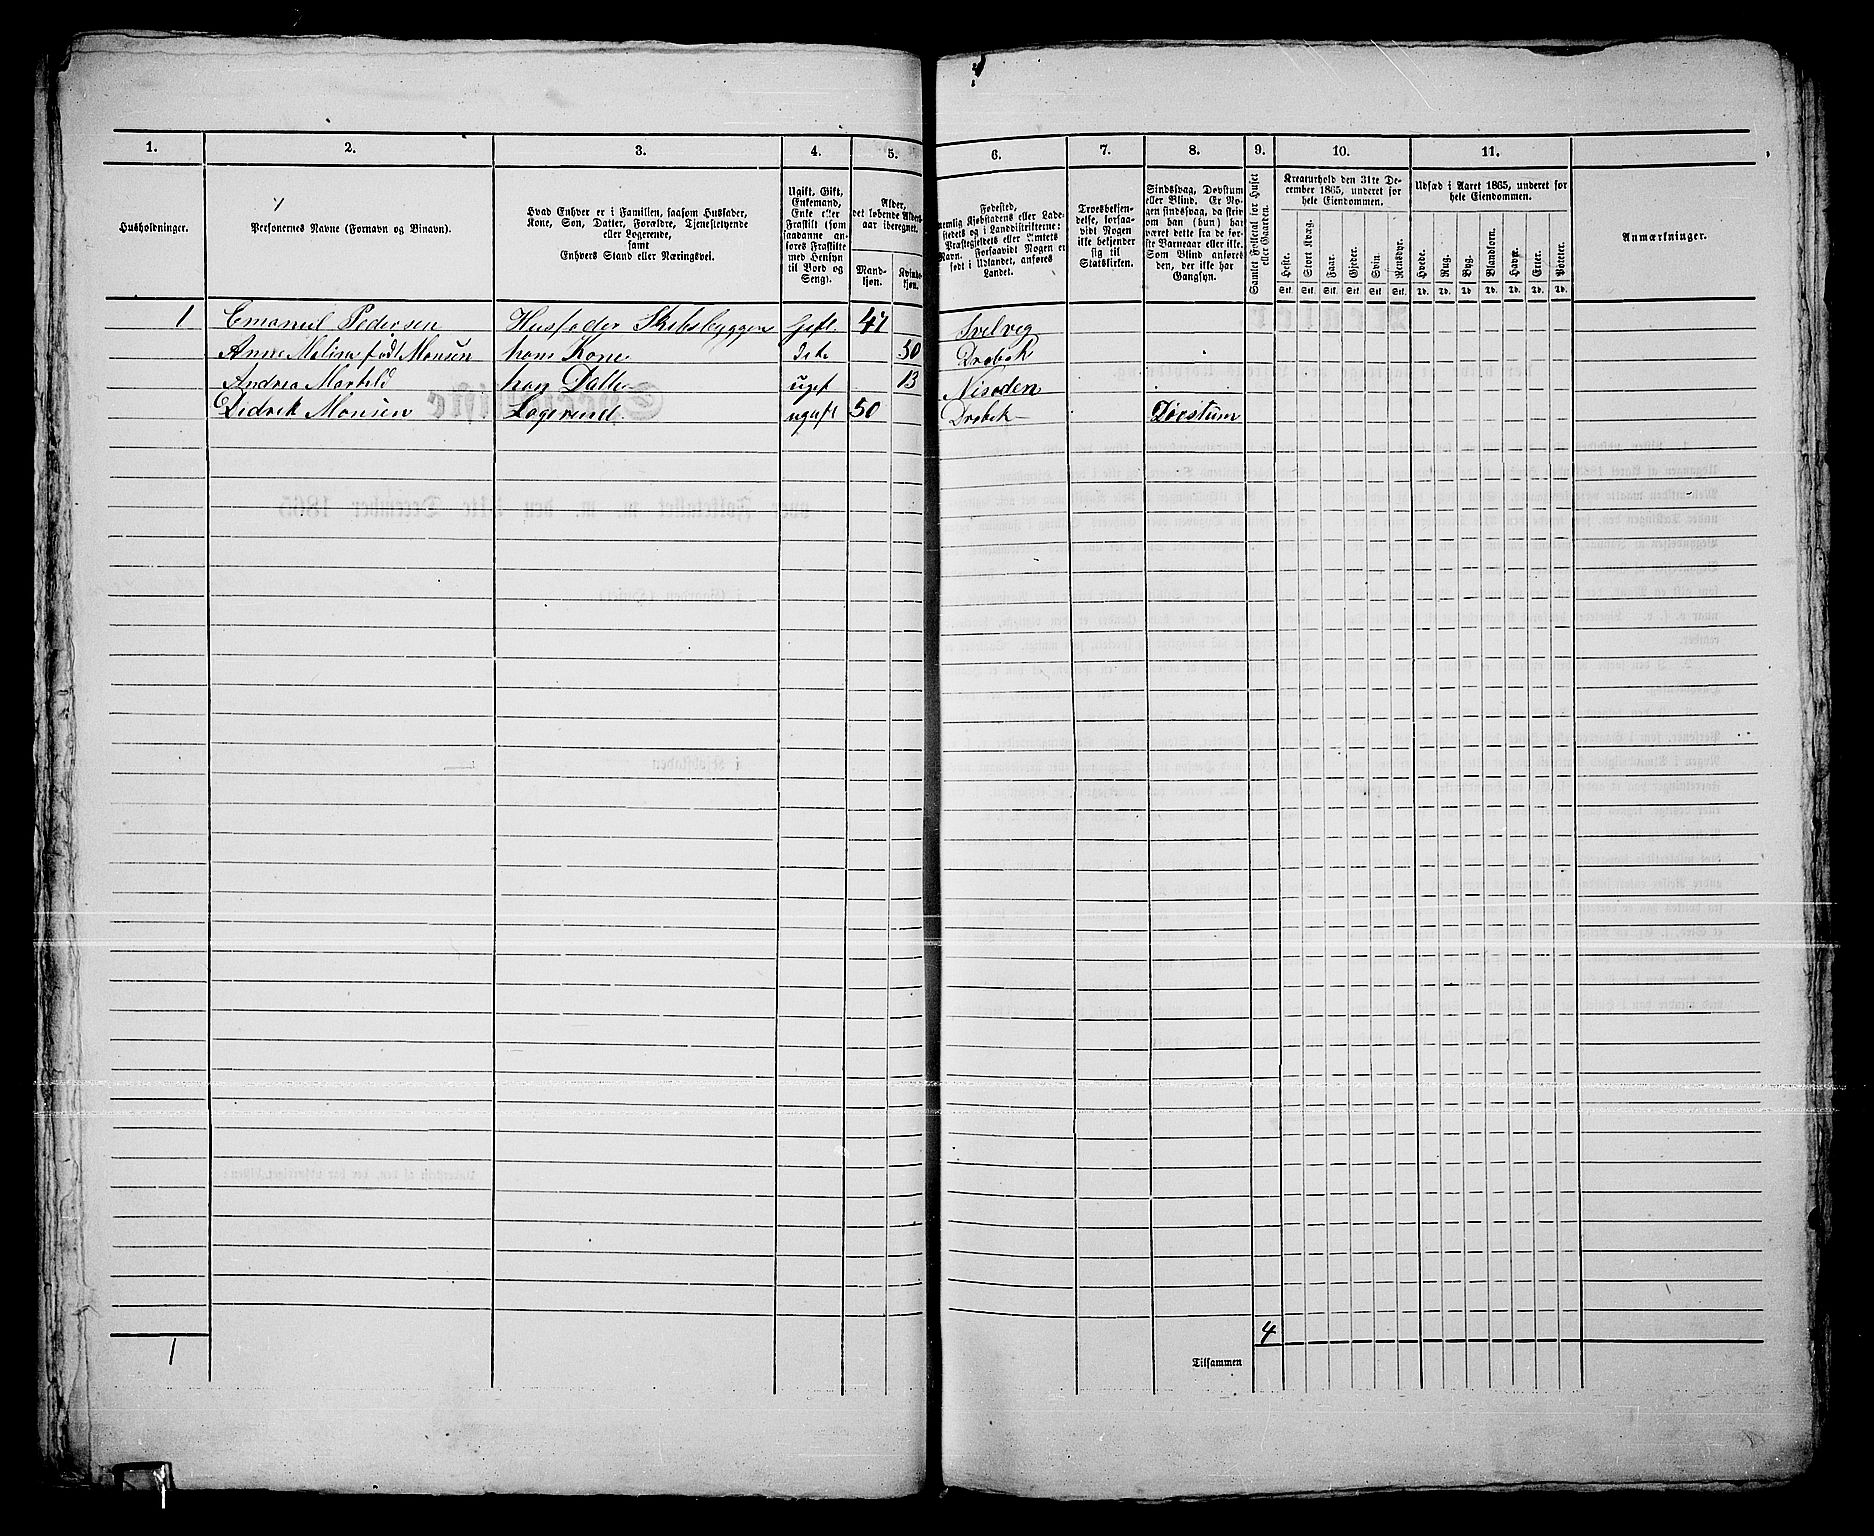 1. 2. 3. 4. 5. 6. 7. 8. 9. 10. 11.
Husholdninger.
Personernes Navne (Fornavn og Binavn).
Hvad Enhver er i Familien, saasom Husfader,
Kone, Søn, Datter, Forældre, Tjenestetyende
eller Logerende,
samt
Enhvers Stand eller Næringsvei.
Ugift, Gift,
Enkemand,
Enke eller
Fraskilt (som
saadanne an-
føres Fraskilte
med Hensyn
til Bord og
Seng).
Alder,
det løbende Alders-
aar iberegnet.
Mand-
kjøn.
Kvinde-
kjøn.
Fødested,
nemlig Kjøbstadens eller Lade-
stedets og i Landdistrikterne:
Præstegjeldets eller Amtets
Navn. Forsaavidt Nogen er
født i Udlandet, anføres
Landet.
Troesbekjen-
delse, forsaa-
vidt Nogen
ikke bekjender
sig til
Statskirken.
Sindssvag, Døvstum
eller Blind. Er No-
gen sindssvag, da skriv
om han (hun) har
været dette fra de før-
ste Barneaar eller ikke.
Som Blind anføres
den, der ikke har
Gangsyn.
Samlet Folketal for Huset
eller Gaarden.
Kreaturhold den 31te De-
cember 1865, underet for
hele Eiendommen.
Heste. Stort Kvæg. Faar. Gjeder. Svin. Rensdyr.
Stk. Stk. Stk. Stk. Stk. Stk.
Udsæd i Aaret 1865, underet for
hele Eiendommen.
Hvede. Rug. Byg. Blandkorn. Havre. Erter. Poteter.
Td. Td. Td. Td. Td. Td. Td.
Anmærkninger.
1 Emanuel Pedersen Husfader Skibsbygger Gift 47 Svelvig
Anne Maline født Monsen hans Kone 50 Drøbak
Andrea han Datter ugift 13 Nesodden
Didrik Monsen Logerende ugift 50 Drøbak Døvstum
4
1
Tilsammen